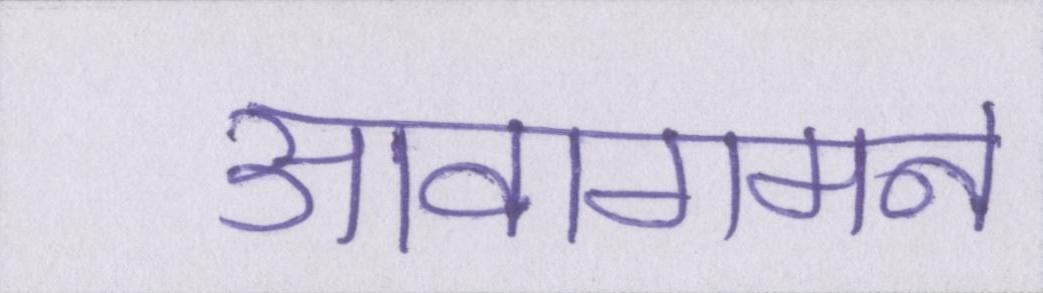 आवागमन